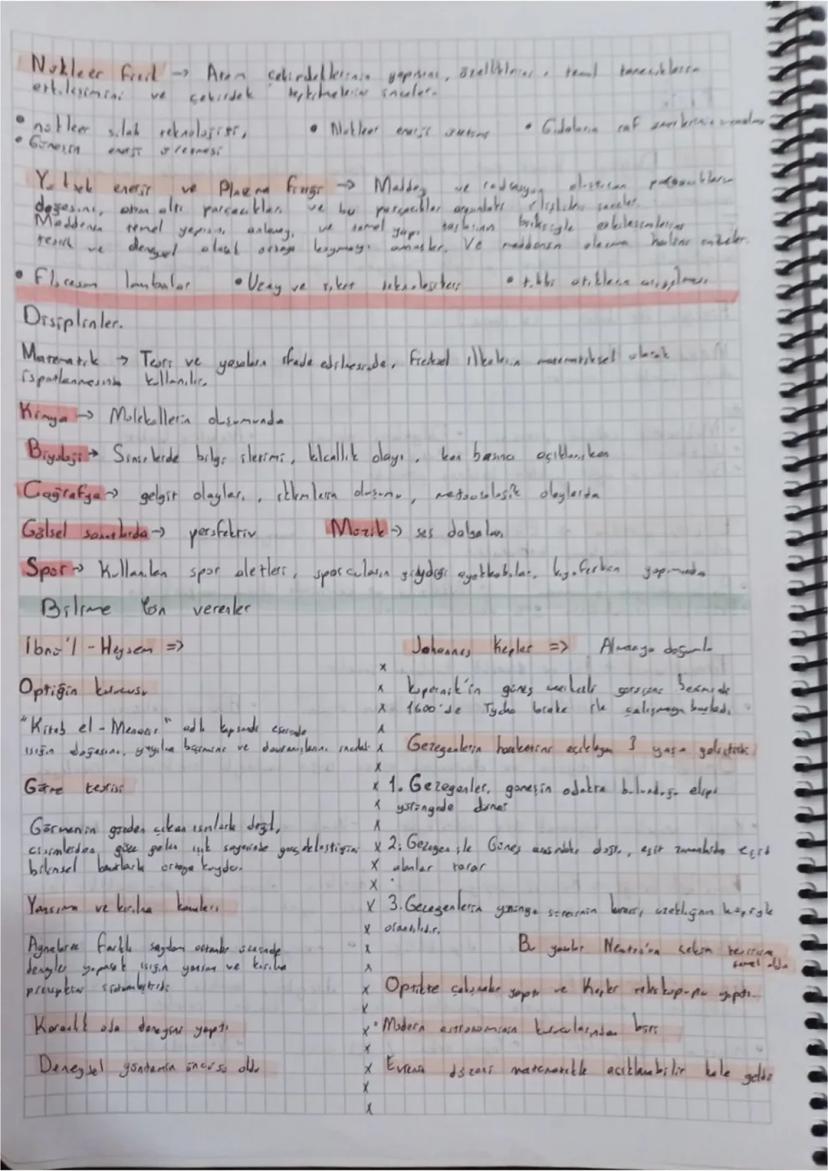 Nükleer fizik → Atom çekirdeklerinin yapısını, özelliklerini, temel taneciklerin
etkileşimini ve çekirdek tepkimelerini inceler.
• nükleer silah teknolojisi, • Nükleer enerji üretimi • Gıdaların raf
• Güneşin enerji üretmesi
Yüksek enerji ve Plazma fiziği → Maddeyi ve radyasyonu oluşturan parçacıkların
doğasını, atom altı parçacıkları ve bu parçacıklar arasındaki ilişkileri inceler.
Maddenin temel yapısını anlamayı, ve temel yapı taşlarının birbiriyle etkileşimlerini
teorik ve deneysel olarak ortaya koymayı amaçlar. Ve maddenin plazma halini inceler.
• Floresan lambalar • Uzay ve roket teknolojileri • tıbbi atıkların
Disiplinler.
Matematik → Teori ve yasaların ifade edilmesinde, fiziksel ilkelerin matematiksel olarak
ispatlanmasında kullanılır.
Kimya → Moleküllerin oluşumunda
Biyoloji → Sinirlerde bilgi iletimi, kılcallık olayı, kan basıncı açıklanırken
Coğrafya → gelgit olayları, iklimlerin oluşumu, meteorolojik olaylarda
Görsel sanatlarda → perspektiv Müzik → ses dalgaları
Spor → Kullanılan spor aletleri, sporcuların giydiği ayakkabılar, kıyafetken yapımında
Bilime Yön verenler
İbnü'l - Heysem =>
Optiğin kurucusu
"Kitab el-Menazır" adlı kapsamlı eserinde
ışığın doğasını, yayılma biçimini ve davranışlarını inceledi.
Görme teorisi
Görmenin gözden çıkan ışınlarla değil,
cisimlerden göze gelen ışık sayesinde gerçekleştiğini
bilimsel olarak ortaya koydu.
Yansıma ve kırılma kanunları
Aynalarda farklı saydam ortamlar arasında
deneyler yaparak ışığın yansıma ve kırılma
prensiplerini
Karanlık oda deneyini yaptı
Deneysel yöntemin öncüsü oldu
Johannes Kepler => Almanya doğumlu
Kopernik'in güneş merkezli görüşünü benimsedi
1600'de Tycho brahe ile çalışmaya başladı.
Gezegenlerin hareketini açıklayan 3 yasa geliştirdi
1. Gezegenler, güneşin odakta bulunduğu elips
yörüngede döner
2. Gezegen ile Güneş arasındaki doğru, eşit zamanlarda eşit
alanlar tarar
3. Gezegenlerin yörünge süresinin karesi, uzaklığın küpüyle
orantılıdır.
Bu yasalar Newton'un çekim teorisine
temel oldu
Optikte çalışmalar yaptı ve Kepler teleskopunu yaptı.
• Modern astronominin kurucularından biri
Evrenin düzeni matematikle açıklanabilir hale geldi